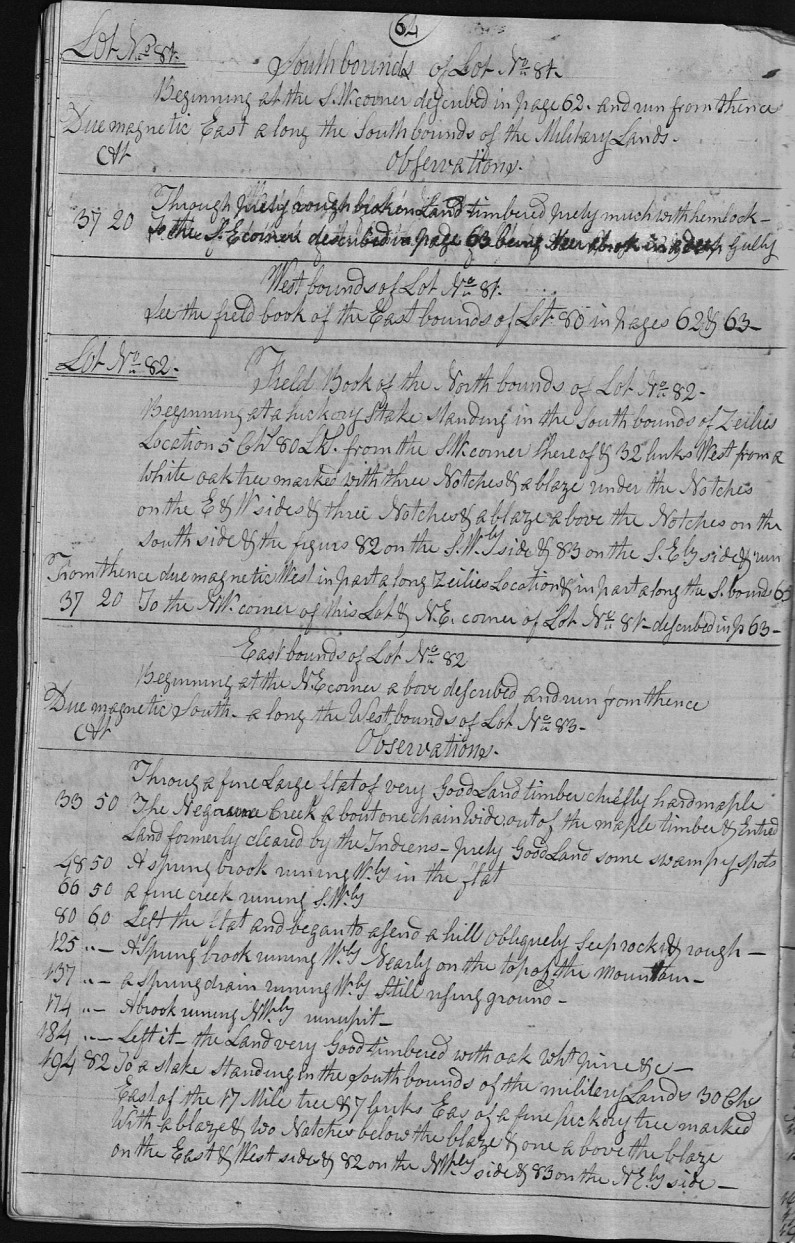 64
Lot No. 81.
South bounds of Lot No. 81.
Beginning at the S.W. corner described in page 62. and run from thence
Due magnetic East along the South bounds of the Military Lands.
Cht Observations.
Through prety rough broken Land timbered prety much with hemlock —
37 20 To the S.E corner described in page 63 being in a deep Gully
West bounds of Lot No. 81.
See the field book of the East bounds of Lot. 80 in pages 62 & 63 —
Lot No. 82.
Field Book of the North bounds of Lot No. 82 -
Beginning at a hickory Stake Standing in the South bounds of Zeilies
Location 5 Chs 80 Lks. from the S.W. corner there of & 32 links West from a
white oak tree marked with three Notches & a blaze under the Notches
on the E & W sides & three Notches & a blaze above the Notches on the
south side & the figurs 82 on the S.Wby side & 83 on the S.Eby side & run
From thence due magnetic West in part along Zeilies Location & in part along the S. bounds 65
37 20 To the N.W. corner of this Lot & N.E. corner of Lot No. 81 - described in p 63 -
East bounds of Lot No. 82
Beginning at the N.E corner above described and run from thence
Due magnetic South - along the West bounds of Lot No. 83 -
Cht Observations.
Throug a fine Large flat of very Good Land timber chiefly hard maple
33 50 The Creek about one chain Wide, out of the maple timber & Entred
Land formerly cleared by the Indiens - prety Good Land some swampy spots
48 50 A spring brook runing Wby in the flat
66 50 a fine creek runing S.Wby
80 60 Left the flat and began to asend a hill obliquely Steep rocki & rough —
125 „ — A Spring brook runing Wby Nearly on the top of the mountain —
137 „ — a spring drain runing Wby Still rising ground -
174 „ — A brook runing NWby run up it -
184 „ — Left it - the Land very Good timbered with oak wht pine &c —
194 82 To a stake standing in the South bounds of the military Lands 30 Chs
East of the 17 Mile tree & 7 links Eas of a fine hickory tree marked
With a blaze & two Natches below the blaze & one above the blaze
on the East & West sides & 82 on the NWby side & 83 on the N.Eby side —